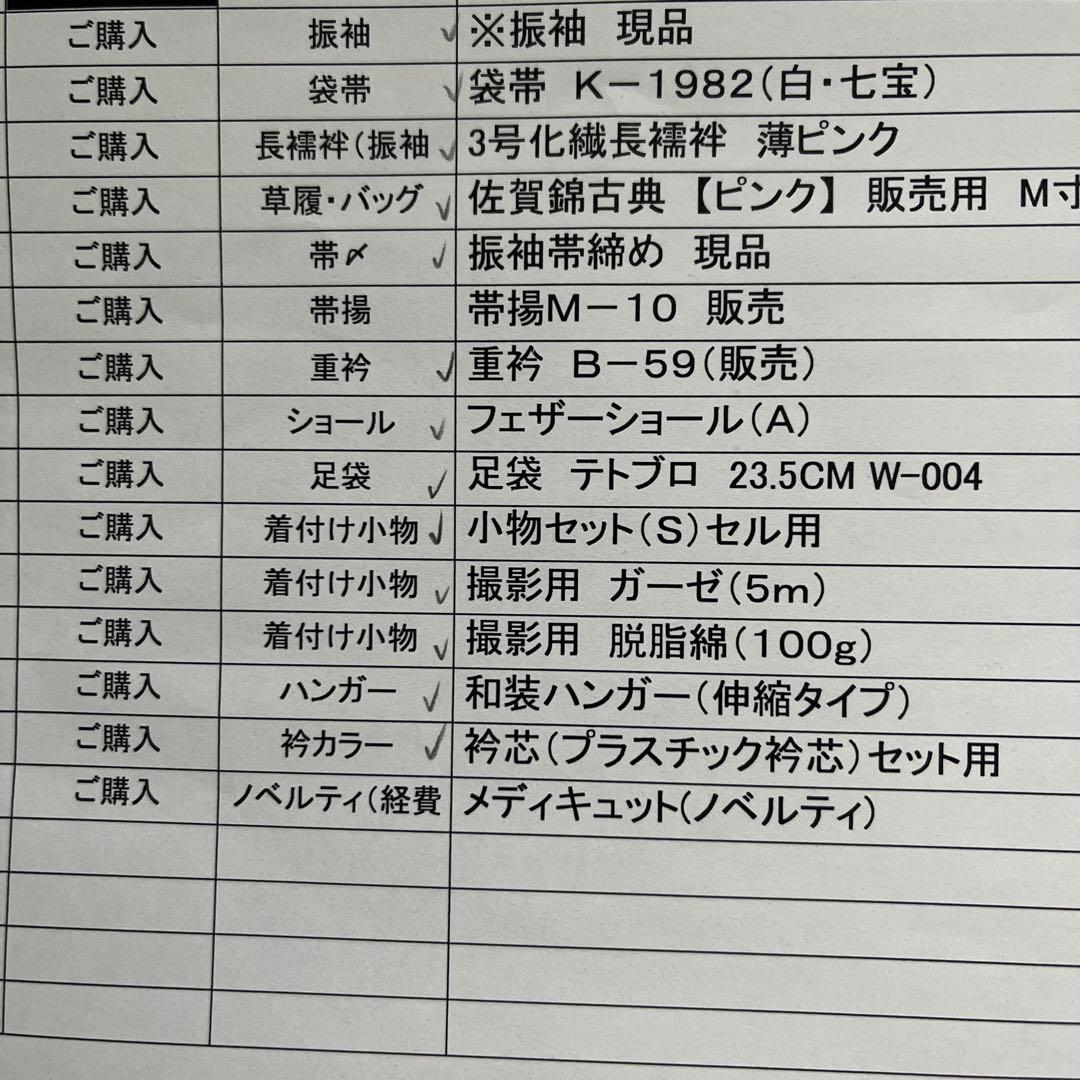 ご購入 振袖 ✓ ※振袖 現品
ご購入 袋帯 ✓ 袋帯 K－1982(白・七宝)
ご購入 長襦袢(振袖 ✓ 3号化繊長襦袢 薄ピンク
ご購入 草履・バッグ ✓ 佐賀錦古典【ピンク】 販売用 M寸
ご購入 帯〆 ✓ 振袖帯締め 現品
ご購入 帯揚 帯揚M－10 販売
ご購入 重衿 ✓ 重衿 B－59(販売)
ご購入 ショール ✓ フェザーショール(A)
ご購入 足袋 ✓ 足袋 テトブロ 23.5CM W-004
ご購入 着付け小物 ✓ 小物セット(S)セル用
ご購入 着付け小物 ✓ 撮影用 ガーゼ(5m)
ご購入 着付け小物 ✓ 撮影用 脱脂綿(100g)
ご購入 ハンガー ✓ 和装ハンガー(伸縮タイプ)
ご購入 衿カラー ✓ 衿芯(プラスチック衿芯)セット用
ご購入 ノベルティ(経費 メディキュット(ノベルティ)